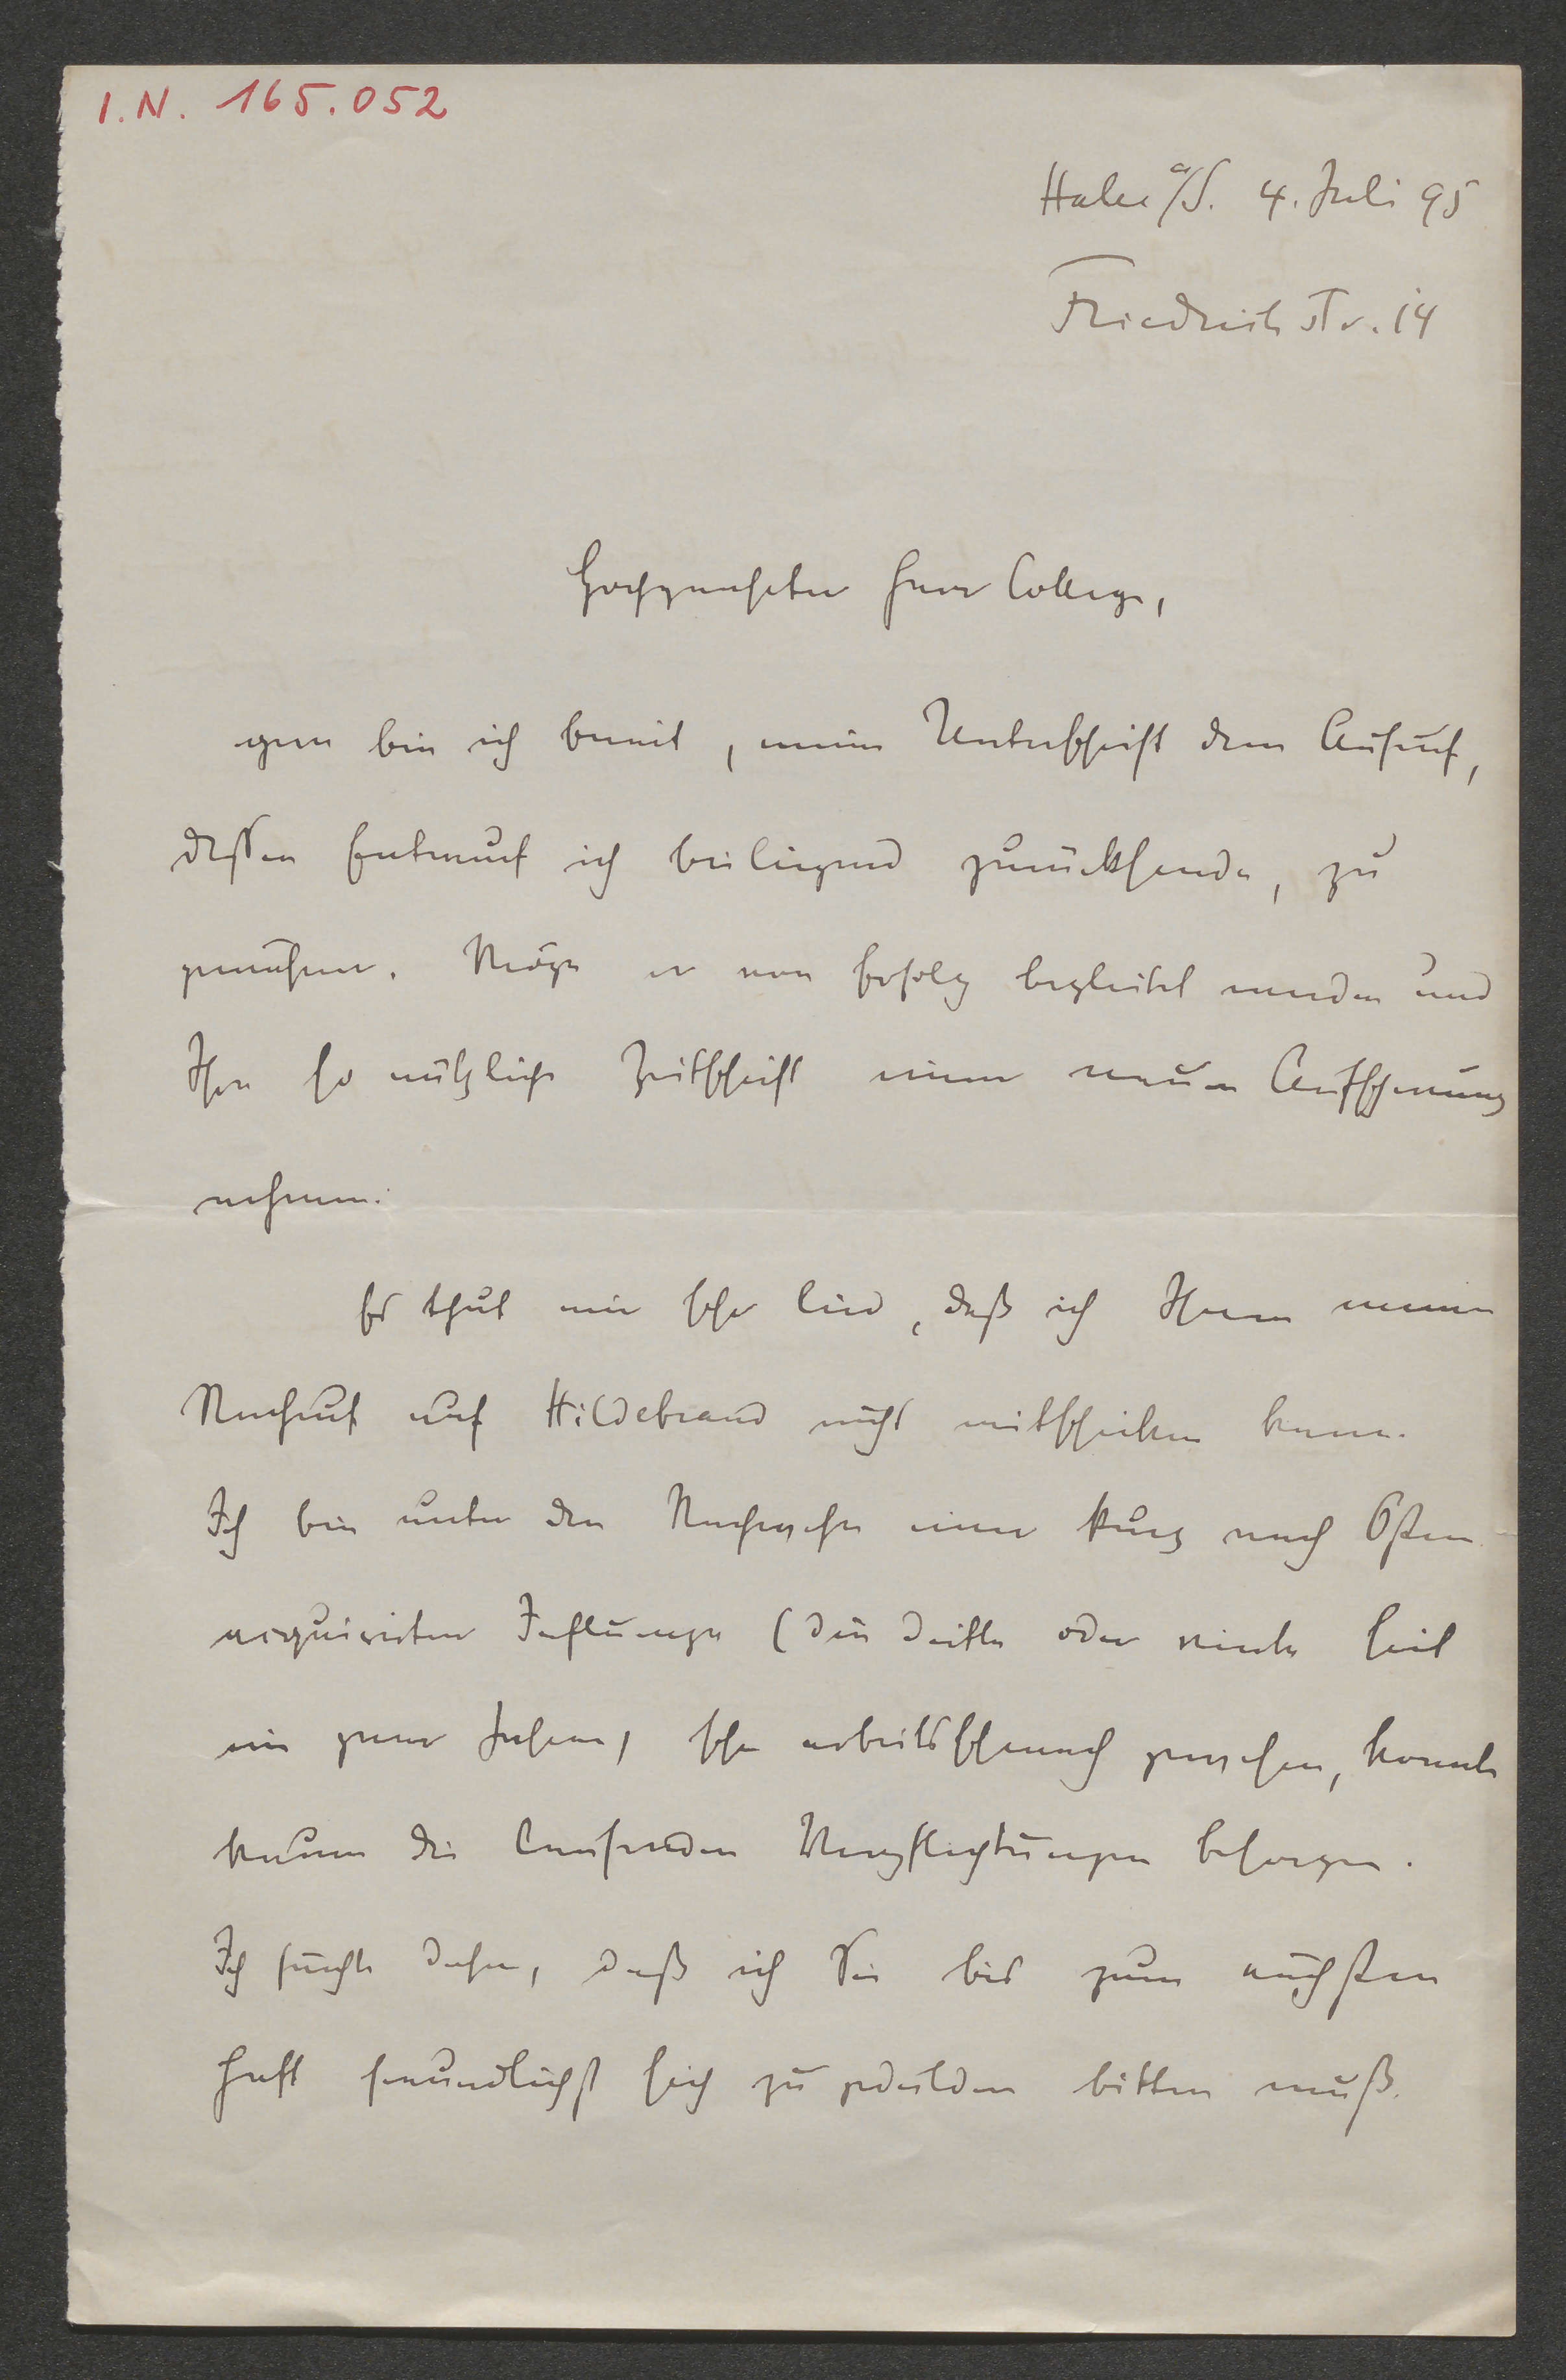 I.N. 165.052
Halle a/S. 4. Juli 95
Friedrichstr. 14
Hochgeehrter Herr College,
gern bin ich bereit, meine Unterschrift dem Aufruf,
dessen Entwurf ich beiliegend zurücksende, zu
gewähren. Möge er von Erfolg begleitet werden und
Ihre so nützliche Zeitschrift einen neuen Aufschwung
nehmen.
Es thut mir sehr leid, daß ich Ihnen meinen
Nachruf auf Hildebrand nicht mitschicken kann.
Ich bin unter den Nachwehen einer kurz nach Ostern
acquirirten Influenza (die dritte oder vierte seit
ein paar Jahren) sehr arbeitsschwach gewesen, konnte
kaum die laufenden Verpflichtungen besorgen.
Ich fürchte daher, daß ich Sie bis zum nächsten
Heft freundlichst sich zu gedulden bitten muß.